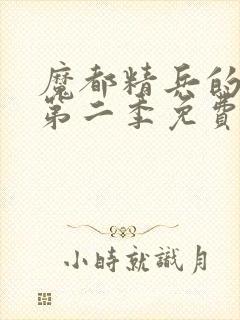 魔都精兵的
第二季免費
小時就識月